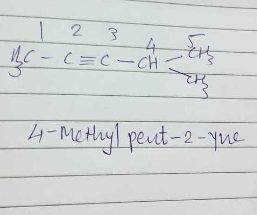 1 2 3 4 5
H₃C - C ≡ C - CH - CH₃
CH₃
4-Methyl pent-2-yne